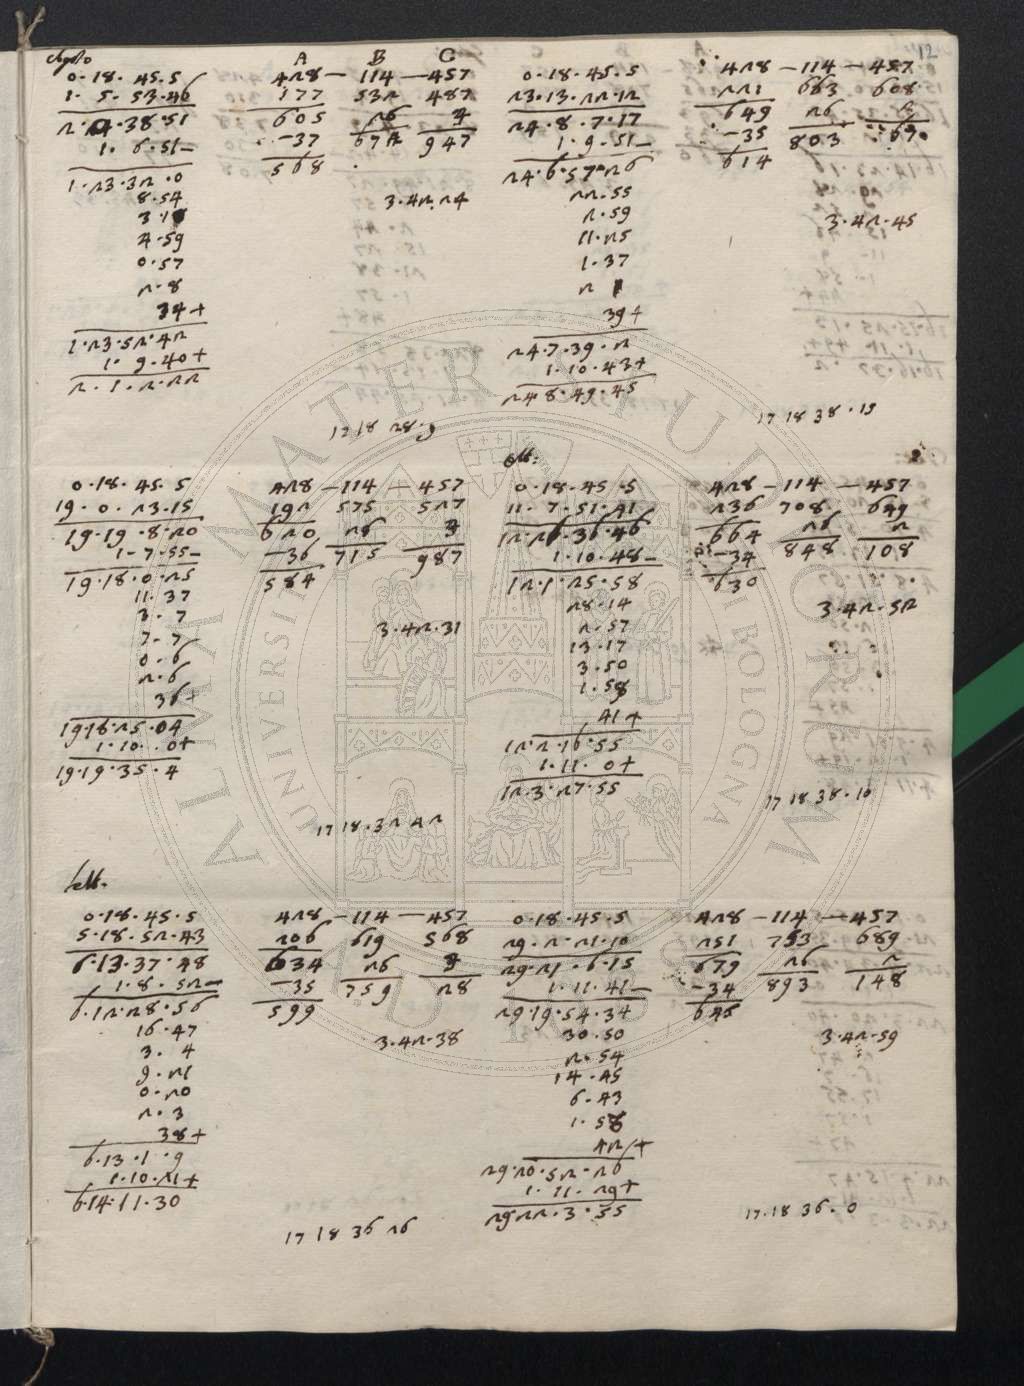 12
Agosto
0.18.45.5
1.5.53.46
1.24.38.51
1.6.51-
1.23.32.0
8.54
4.59
0.57
2.8
34+
1.23.52.42
1.9.40+
2.1.2.22
A B C
428 - 114 - 457
177 532 487
605 26 3
-37 672 947
568
3.42.24
17 18 28.9
0.18.45.5
23.19.22.12
24.8.7.17
1.9.51-
24.6.57.26
22.55
2.59
11.25
1.37
2 1
39+
24.7.39.2
1.10.43+
24.8.49.45
A
428 - 114 - 457
221 663 608
649 26 2
-35 803 67
614
3.42.45
17 18 38.19
0.18.45.5
19.0.23.15
19.19.8.20
1-7.55-
19.18.0.25
11.37
3.7
7.7
0.6
2.6
36+
19.18.25.04
1.10.0+
19.19.35.4
428 - 114 - 457
192 575 527
620 26 3
-36 715 987
584
3.42.31
17 18.32 42
Ott:
0.18.45.5
11.13.51.41
12.2.36.46
1.10.48-
12.1.25.58
28.14
2.57
13.17
3.50
1.58
41+
12.2.16.55
1.11.0+
12.3.27.55
428 - 114 - 457
236 708 649
664 26 2
-34 848 108
630
3.42.52
17 18 38.10
Sett.
0.18.45.5
5.18.52.43
6.13.37.48
1.8.52-
6.12.28.56
16.47
3.4
9.21
0.20
2.3
38+
6.13.1.9
1.10.21+
6.14.11.30
428 - 114 - 457
206 619 568
634 26 3
-35 759 28
599
3.42.38
17 18 36 26
0.18.45.5
29.2.21.10
29.21.6.15
1.11.41-
29.19.54.34
30.50
2.54
14.45
6.43
1.58
42+
29.20.52.26
1.11.29+
29.22.3.55
428 - 114 - 457
251 753 689
679 26 2
-34 893 148
645
3.42.59
17.18 36.0
ALMA MATER STUDIORUM
UNIVERSITÀ DI BOLOGNA